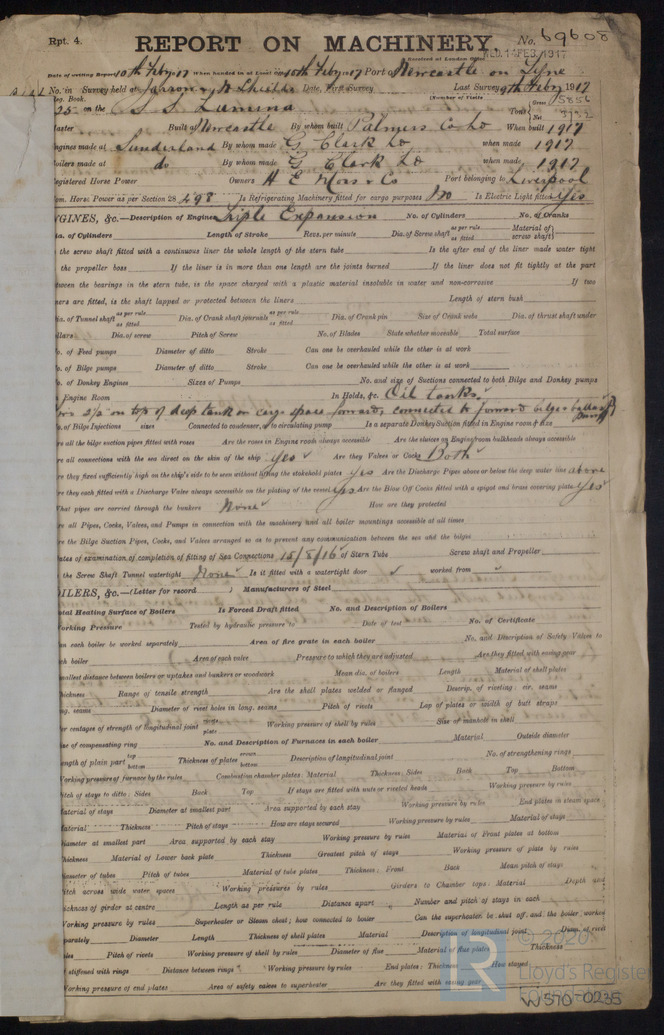 Rpt. 4.
REPORT ON MACHINERY.
No. 69608
Received at London Office WED. 14 FEB. 1917
Date of writing Report 10th Feby 17 When handed in at Local Office 10th Feby 17 Port of Newcastle on Tyne
No. in Survey held at Jarrow & N Shields Date, First Survey Last Survey 9th Feby 1917
Reg. Book. (Number of Visits
25 on the S. S. Lumina Tons Gross 5856 Net
Master Built at Newcastle By whom built Palmers Co Ld When built 1917
Engines made at Sunderland By whom made G. Clark Ld when made 1917
Boilers made at do By whom made G. Clark Ld when made 1917
Registered Horse Power Owners H E Moss & Co Port belonging to Liverpool
Nom. Horse Power as per Section 28 498 Is Refrigerating Machinery fitted for cargo purposes No Is Electric Light fitted Yes
ENGINES, &c.—Description of Engines Triple Expansion No. of Cylinders No. of Cranks
Dia. of Cylinders Length of Stroke Revs. per minute Dia. of Screw shaft as per rule as fitted Material of screw shaft
Is the screw shaft fitted with a continuous liner the whole length of the stern tube Is the after end of the liner made water tight
in the propeller boss If the liner is in more than one length are the joints burned If the liner does not fit tightly at the part
between the bearings in the stern tube, is the space charged with a plastic material insoluble in water and non-corrosive If two
liners are fitted, is the shaft lapped or protected between the liners Length of stern bush
Dia. of Tunnel shaft as per rule as fitted Dia. of Crank shaft journals as per rule as fitted Dia. of Crank pin Size of Crank webs Dia. of thrust shaft under
collars Dia. of screw Pitch of Screw No. of Blades State whether moveable Total surface
No. of Feed pumps Diameter of ditto Stroke Can one be overhauled while the other is at work
No. of Bilge pumps Diameter of ditto Stroke Can one be overhauled while the other is at work
No. of Donkey Engines Sizes of Pumps No. and size of Suctions connected to both Bilge and Donkey pumps
In Engine Room In Holds, &c. Oil tanks.
2 1/2 on top of deep tank on cargo space forward, connected to forward bilge & ballast pump
No. of Bilge Injections sizes Connected to condenser, or to circulating pump Is a separate Donkey Suction fitted in Engine room & size
Are all the bilge suction pipes fitted with roses Are the roses in Engine room always accessible Are the sluices on Engine room bulkheads always accessible
Are all connections with the sea direct on the skin of the ship Yes Are they Valves or Cocks Both
Are they fixed sufficiently high on the ship's side to be seen without lifting the stokehold plates Yes Are the Discharge Pipes above or below the deep water line above
Are they each fitted with a Discharge Valve always accessible on the plating of the vessel Yes Are the Blow Off Cocks fitted with a spigot and brass covering plate Yes
What pipes are carried through the bunkers None How are they protected
Are all Pipes, Cocks, Valves, and Pumps in connection with the machinery and all boiler mountings accessible at all times
Are the Bilge Suction Pipes, Cocks, and Valves arranged so as to prevent any communication between the sea and the bilges
Dates of examination of completion of fitting of Sea Connections 15/8/16 of Stern Tube Screw shaft and Propeller
Is the Screw Shaft Tunnel watertight None Is it fitted with a watertight door worked from
BOILERS, &c.—(Letter for record ) Manufacturers of Steel
Total Heating Surface of Boilers Is Forced Draft fitted No. and Description of Boilers
Working Pressure Tested by hydraulic pressure to Date of test No. of Certificate
Can each boiler be worked separately Area of fire grate in each boiler No. and Description of Safety Valves to
each boiler Area of each valve Pressure to which they are adjusted Are they fitted with easing gear
Smallest distance between boilers or uptakes and bunkers or woodwork Mean dia. of boilers Length Material of shell plates
Thickness Range of tensile strength Are the shell plates welded or flanged Descrip. of riveting: cir. seams
long. seams Diameter of rivet holes in long. seams Pitch of rivets Lap of plates or width of butt straps
Per centages of strength of longitudinal joint rivets plate Working pressure of shell by rules Size of manhole in shell
Size of compensating ring No. and Description of Furnaces in each boiler Material Outside diameter
Length of plain part top bottom Thickness of plates crown bottom Description of longitudinal joint No. of strengthening rings
Working pressure of furnace by the rules Combustion chamber plates: Material Thickness: Sides Back Top Bottom
Pitch of stays to ditto: Sides Back Top If stays are fitted with nuts or riveted heads Working pressure by rules
Material of stays Diameter at smallest part Area supported by each stay Working pressure by rules End plates in steam space
Material Thickness Pitch of stays How are stays secured Working pressure by rules Material of stays
Diameter at smallest part Area supported by each stay Working pressure by rules Material of Front plates at bottom
Thickness Material of Lower back plate Thickness Greatest pitch of stays Working pressure of plate by rules
Diameter of tubes Pitch of tubes Material of tube plates Thickness: Front Back Mean pitch of stays
Pitch across wide water spaces Working pressures by rules Girders to Chamber tops: Material Depth and
thickness of girder at centre Length as per rule Distance apart Number and pitch of stays in each
Working pressure by rules Superheater or Steam chest; how connected to boiler Can the superheater be shut off and the boiler worked
separately Diameter Length Thickness of shell plates Material Description of longitudinal joint Diam. of rivet
holes Pitch of rivets Working pressure of shell by rules Diameter of flue Material of flue plates Thickness
If stiffened with rings Distance between rings Working pressure by rules End plates: Thickness How stayed
Working pressure of end plates Area of safety valves to superheater Are they fitted with easing gear
© 2020
Lloyd's Register
Foundation
W570-0235